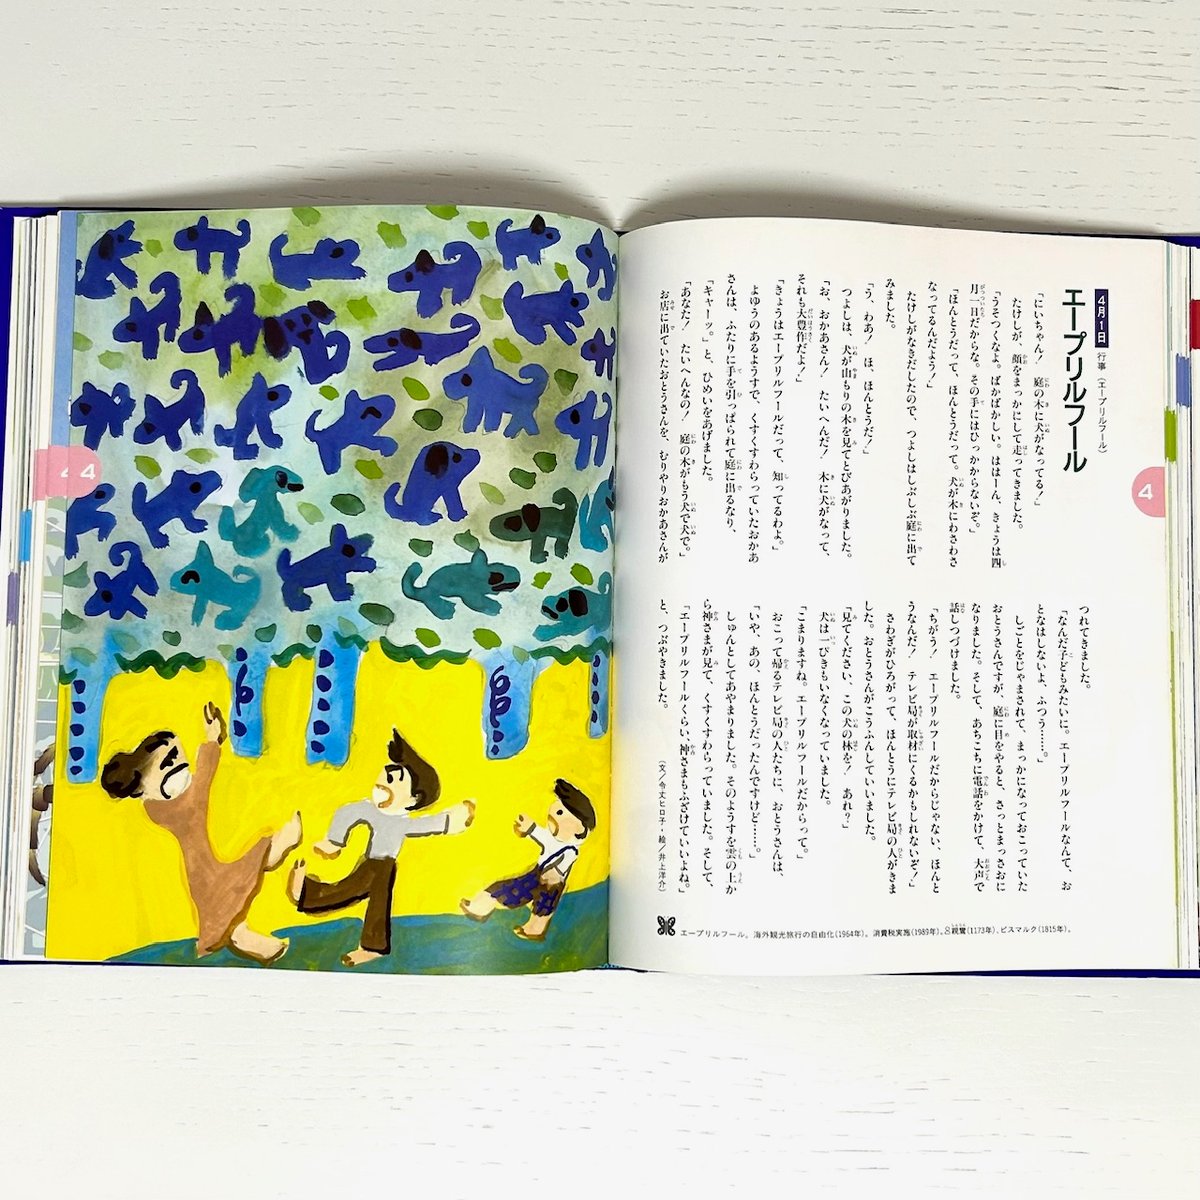 4月1日 行事(エープリルフール)
エープリルフール
「にいちゃん! 庭の木に犬がなってる!」
たけしが、顔をまっかにして走ってきました。
「うそつくなよ。ばかばかしい。ははーん、きょうは四
月一日だからな。その手にはひっかからないぞ。」
「ほんとうだって、ほんとうだって。犬が木にわさわさ
なってるんだよう!」
たけしがなきだしたので、つよしはしぶしぶ庭に出て
みました。
「う、わあ! ほ、ほんとうだ!」
つよしは、犬が山もりの木を見てとびあがりました。
「お、おかあさん! たいへんだ! 木に犬がなって、
それも大豊作だよ!」
「きょうはエープリルフールだって、知ってるわよ。」
よゆうのあるようすで、くすくすわらっていたおかあ
さんは、ふたりに手を引っぱられて庭に出るなり、
「キャーッ。」と、ひめいをあげました。
「あなた! たいへんなの! 庭の木がもう犬で犬で。」
お店に出ていたおとうさんを、むりやりおかあさんが
つれてきました。
「なんだ子どもみたいに。エープリルフールなんて、お
となはしないよ、ふつう……。」
しごとをじゃまされて、まっかになっておこっていた
おとうさんですが、庭に目をやると、さっとまっさおに
なりました。そして、あちこちに電話をかけて、大声で
話しつづけました。
「ちがう! エープリルフールだからじゃない、ほんと
うなんだ! テレビ局が取材にくるかもしれないぞ!」
さわぎがひろがって、ほんとうにテレビ局の人がきま
した。おとうさんがこうふんしていいました。
「見てください、この犬の林を! あれ?」
犬は一ぴきもいなくなっていました。
「こまりますね。エープリルフールだからって。」
おこって帰るテレビ局の人たちに、おとうさんは、
「いや、あの、ほんとうだったんですけど……。」
しゅんとしてあやまりました。そのようすを雲の上か
ら神さまが見て、くすくすわらっていました。そして、
「エープリルフールくらい、神さまもふざけていいよね。」
と、つぶやきました。
(文/令丈ヒロ子・絵/井上洋介)
エープリルフール。海外観光旅行の自由化(1964年)。消費税実施(1989年)。8親鸞(1173年)、ビスマルク(1815年)。
4
4
4